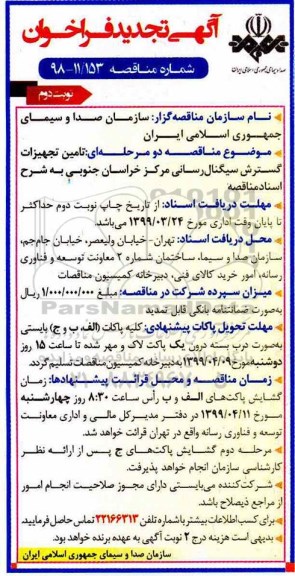 آگهی تجدید فراخوان
صدا و سیمای جمهوری اسلامی ایران
شماره مناقصه ۹۸-۱۱/۱۵۳
نوبت دوم
نام سازمان مناقصه‌گزار: سازمان صدا و سیمای
جمهوری اسلامی ایران
موضوع مناقصه دو مرحله‌ای: تامین تجهیزات
گسترش سیگنال‌رسانی مرکز خراسان جنوبی به شرح
اسنادمناقصه
مهلت دریافت اسناد: از تاریخ چاپ نوبت دوم حداکثر
تا پایان وقت اداری مورخ ۱۳۹۹/۰۳/۲۴ می‌باشد.
محل دریافت اسناد: تهران-خیابان ولیعصر، خیابان جام‌جم،
سازمان صدا و سیما، ساختمان شماره ۲ معاونت توسعه و فناوری
رسانه، امور خرید کالای فنی، دبیرخانه کمیسیون مناقصات
میزان سپرده شرکت در مناقصه: مبلغ ۱/۰۰۰/۰۰۰/۰۰۰ ریال
به‌صورت ضمانتنامه بانکی قابل تمدید
مهلت تحویل پاکات پیشنهادی: کلیه پاکات (الف، ب و ج) بایستی
به‌صورت درب بسته درون یک پاکت لاک و مهر شده تا ساعت ۱۵ روز
دوشنبه مورخ ۱۳۹۹/۰۴/۰۹ به دبیرخانه کمیسیون مناقصات تسلیم گردد.
زمان مناقصه و محل قرائت پیشنهادها: زمان
گشایش پاکت‌های الف و ب رأس ساعت ۸:۳۰ روز چهارشنبه
مورخ ۱۳۹۹/۰۴/۱۱ در دفتر مدیرکل مالی و اداری معاونت
توسعه و فناوری رسانه واقع در تهران قرائت خواهد شد.
مرحله دوم گشایش پاکت‌های ج پس از ارائه نظر
کارشناسی سازمان انجام خواهد پذیرفت.
شرکت‌کننده می‌بایستی دارای مجوز صلاحیت انجام امور
از مراجع ذیصلاح باشد.
برای کسب اطلاعات بیشتر با شماره تلفن ۲۲۱۶۶۳۱۳ تماس حاصل فرمایید.
بدیهی است هزینه درج ۲ نوبت آگهی به عهده برنده خواهد بود.
سازمان صدا و سیمای جمهوری اسلامی ایران